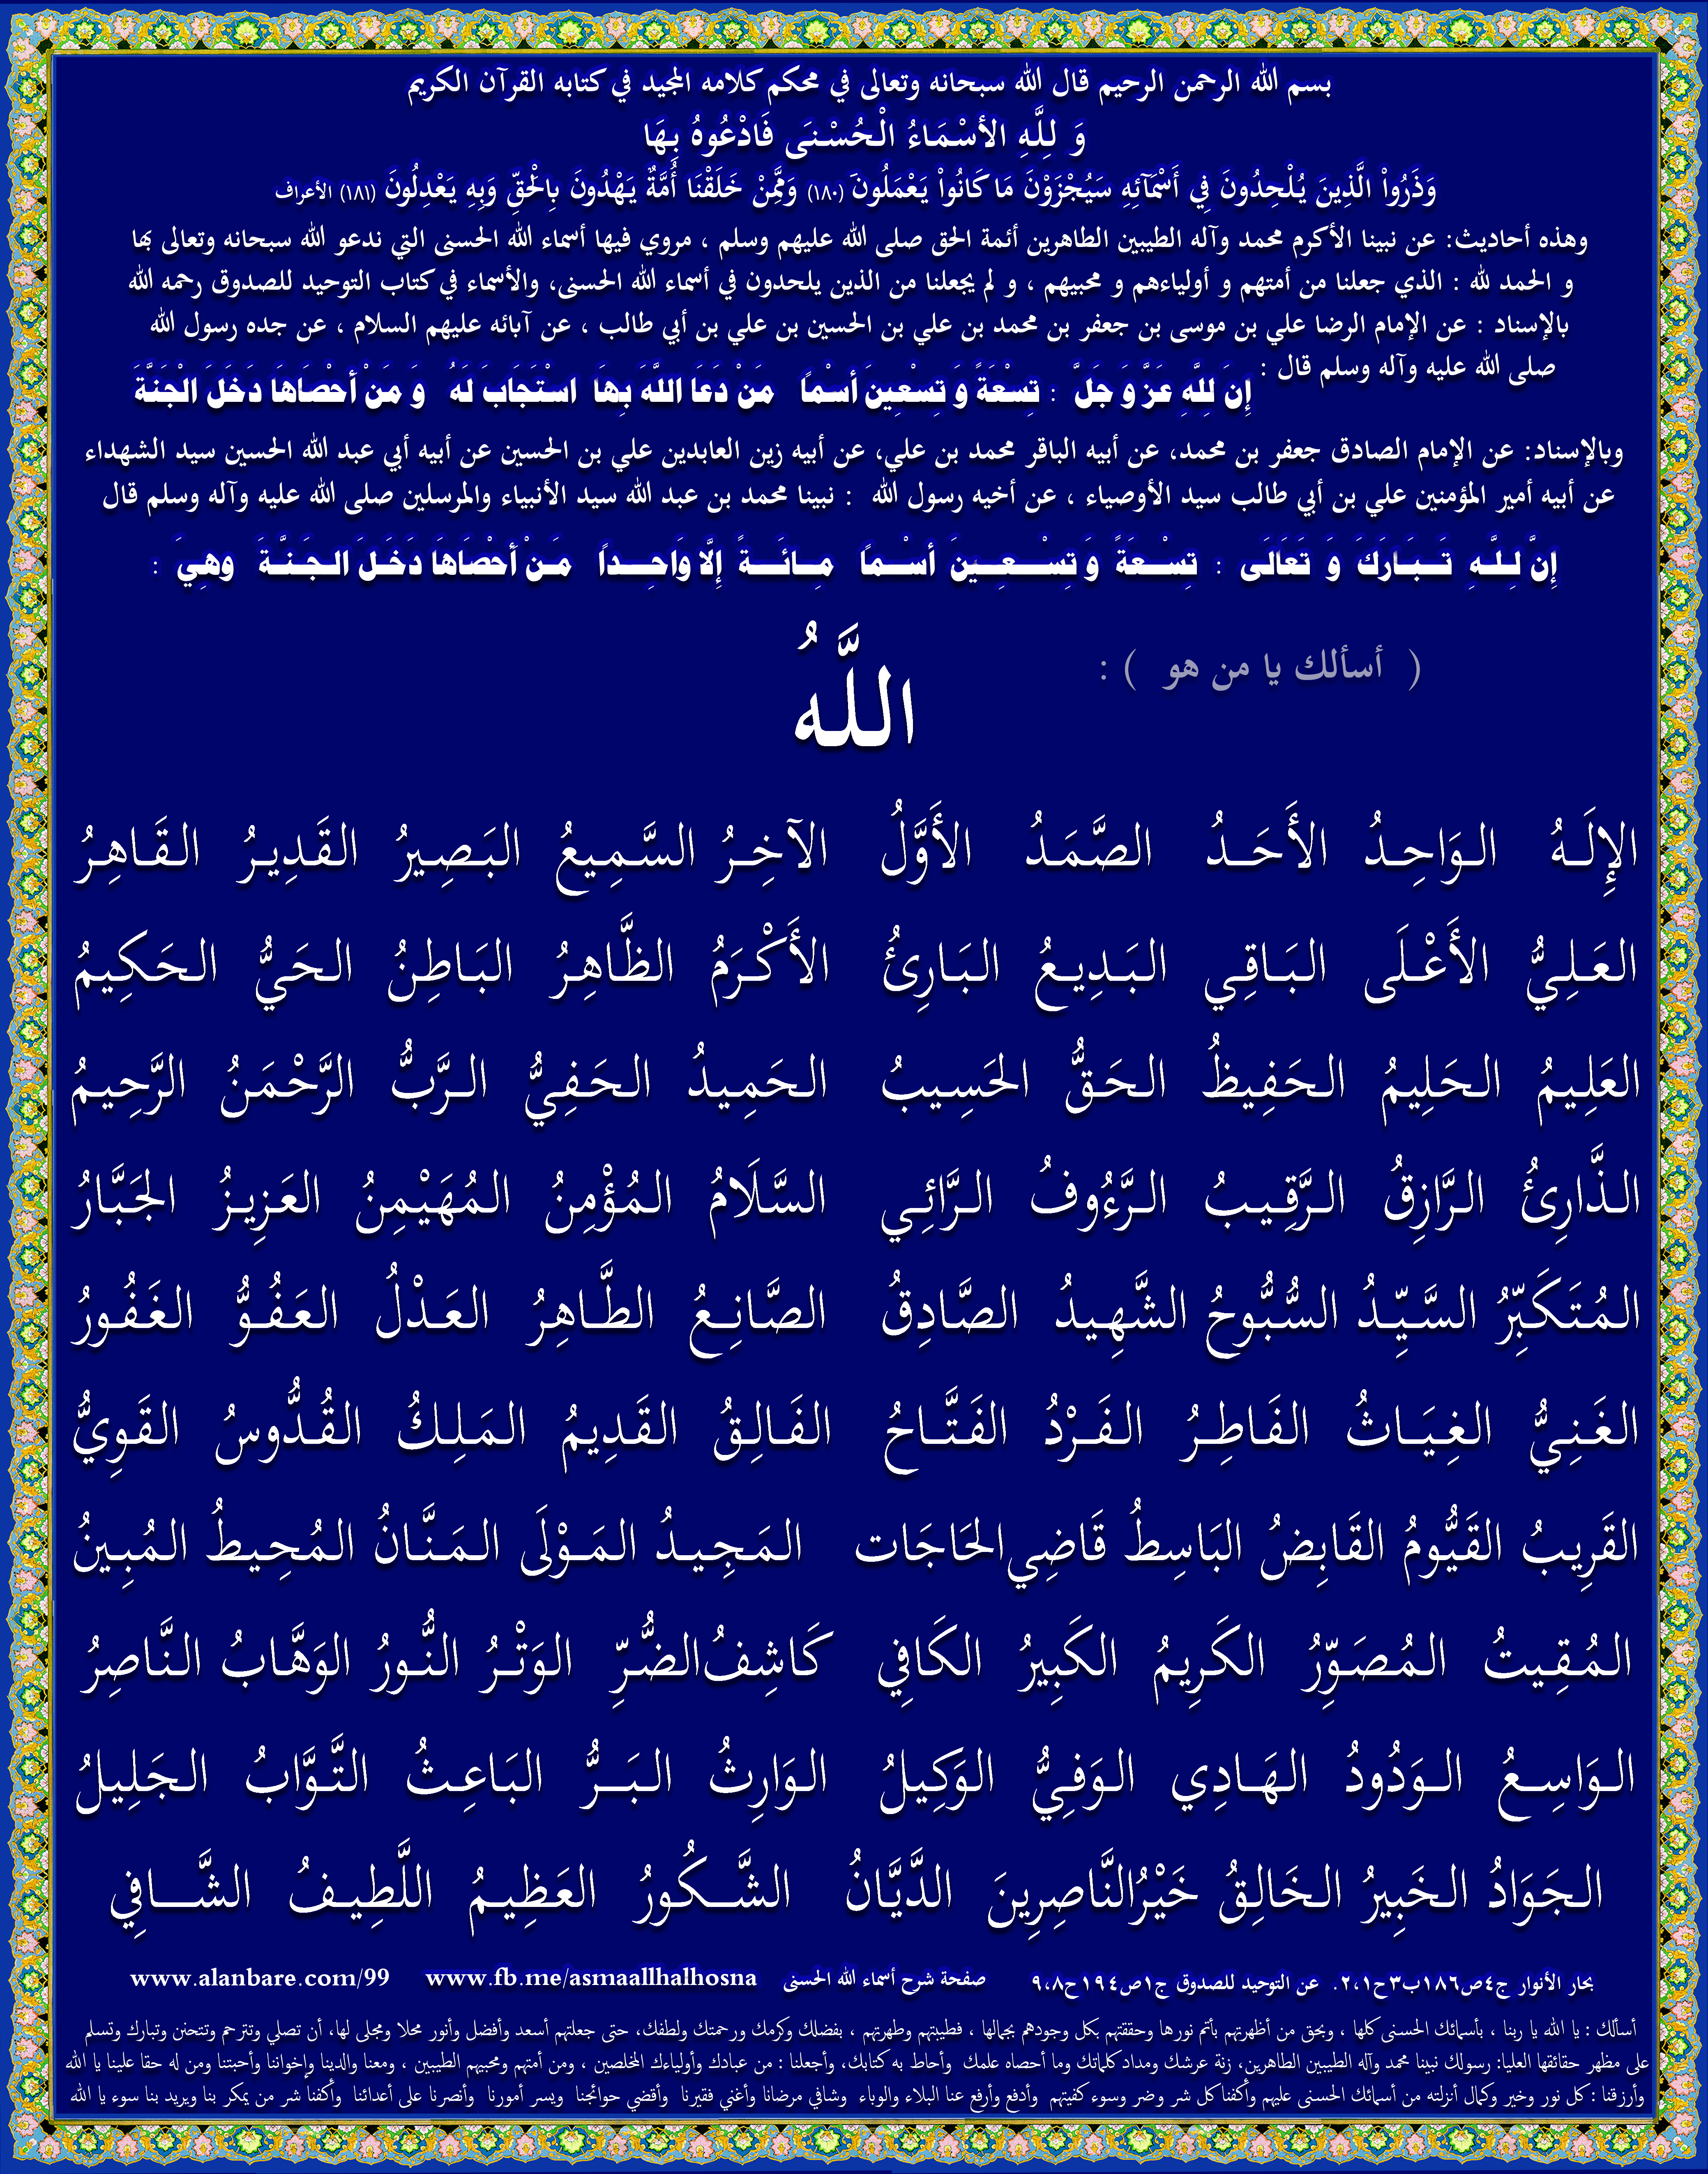 بسم الله الرحمن الرحيم قال الله سبحانه وتعالى في محكم كلامه المجيد في كتابه القرآن الكريم
وَ لِلَّهِ الأسْمَاءُ الْحُسْنَى فَادْعُوهُ بِهَا
وَذَرُواْ الَّذِينَ يُلْحِدُونَ فِي أَسْمَآئِهِ سَيُجْزَوْنَ مَا كَانُواْ يَعْمَلُونَ (١٨٠) وَمِمَّنْ خَلَقْنَا أُمَّةٌ يَهْدُونَ بِالْحَقِّ وَبِهِ يَعْدِلُونَ (١٨١) الأعراف
وهذه أحاديث: عن نبينا الأكرم محمد وآله الطيبين الطاهرين أئمة الحق صلى الله عليهم وسلم ، مروي فيها أسماء الله الحسنى التي ندعو الله سبحانه وتعالى بها
و الحمد لله : الذي جعلنا من أمتهم و أولياءهم و محبيهم ، و لم يجعلنا من الذين يلحدون في أسماء الله الحسنى، والأسماء في كتاب التوحيد للصدوق رحمه الله
بالإسناد : عن الإمام الرضا علي بن موسى بن جعفر بن محمد بن علي بن الحسين بن علي بن أبي طالب ، عن آبائه عليهم السلام ، عن جده رسول الله
صلى الله عليه وآله وسلم قال : إِنَ لِلَّهِ عَزَّ وَ جَلَّ : تِسْعَةً وَ تِسْعِينَ أسْمًا مَنْ دَعَا اللَّهَ بِهَا اسْتَجَابَ لَهُ وَ مَنْ أحْصَاهَا دَخَلَ الْجَنَّةَ
وبالإسناد: عن الإمام الصادق جعفر بن محمد، عن أبيه الباقر محمد بن علي، عن أبيه زين العابدين علي بن الحسين عن أبيه أبي عبد الله الحسين سيد الشهداء
عن أبيه أمير المؤمنين علي بن أبي طالب سيد الأوصياء ، عن أخيه رسول الله : نبينا محمد بن عبد الله سيد الأنبياء والمرسلين صلى الله عليه وآله وسلم قال
إِنَّ لِلَّهِ تَبَارَكَ وَ تَعَالَى : تِسْعَةً وَ تِسْعِينَ أسْمًا مِائَةً إِلَّا وَاحِداً مَنْ أحْصَاهَا دَخَلَ الجَنَّةَ وهِيَ :
( أسألك يا من هو ) : اللَّهُ
الإِلَهُ الوَاحِدُ الأَحَدُ الصَّمَدُ الأَوَّلُ الآخِرُ السَّمِيعُ البَصِيرُ القَدِيرُ القَاهِرُ
العَلِيُّ الأَعْلَى البَاقِي البَدِيعُ البَارِئُ الأَكْرَمُ الظَّاهِرُ البَاطِنُ الحَيُّ الحَكِيمُ
العَلِيمُ الحَلِيمُ الحَفِيظُ الحَقُّ الحَسِيبُ الحَمِيدُ الحَفِيُّ الرَّبُّ الرَّحْمَنُ الرَّحِيمُ
الذَّارِئُ الرَّازِقُ الرَّقِيبُ الرَّءُوفُ الرَّائِي السَّلَامُ المُؤْمِنُ المُهَيْمِنُ العَزِيزُ الجَبَّارُ
المُتَكَبِّرُ السَّيِّدُ السُّبُّوحُ الشَّهِيدُ الصَّادِقُ الصَّانِعُ الطَّاهِرُ العَدْلُ العَفُوُّ الغَفُورُ
الغَنِيُّ الغِيَاثُ الفَاطِرُ الفَرْدُ الفَتَّاحُ الفَالِقُ القَدِيمُ المَلِكُ القُدُّوسُ القَوِيُّ
القَرِيبُ القَيُّومُ القَابِضُ البَاسِطُ قَاضِي الحَاجَات المَجِيدُ المَوْلَى المَنَّانُ المُحِيطُ المُبِينُ
المُقِيتُ المُصَوِّرُ الكَرِيمُ الكَبِيرُ الكَافِي كَاشِفُ الضُّرِّ الوَتْرُ النُّورُ الوَهَّابُ النَّاصِرُ
الوَاسِعُ الوَدُودُ الهَادِي الوَفِيُّ الوَكِيلُ الوَارِثُ البَرُّ البَاعِثُ التَّوَّابُ الجَلِيلُ
الجَوَادُ الخَبِيرُ الخَالِقُ خَيْرُ النَّاصِرِينَ الدَّيَّانُ الشَّكُورُ العَظِيمُ اللَّطِيفُ الشَّافِي
بحار الأنوار ج٤ص١٨٦ب٣ح٢،١. عن التوحيد للصدوق ج١ص١٩٤ح٩،٨ صفحة شرح أسماء الله الحسنى www.fb.me/asmaallhalhosna www.alanbare.com/99
أسألك : يا الله يا ربنا ، بأسمائك الحسنى كلها ، وبحق من أظهرتهم بأتم نورها وحققتهم بكل وجودهم بجمالها ، فطيبتهم وطهرتهم ، بفضلك وكرمك ورحمتك ولطفك، حتى جعلتهم أسعد وأفضل وأنور محلا ومجلى لها، أن تصلي وتترحم وتتحنن وتبارك وتسلم
على مظهر حقائقها العليا: رسولك نبينا محمد وآله الطيبين الطاهرين، زنة عرشك ومداد كلماتك وما أحصاه علمك وأحاط به كتابك، وأجعلنا : من عبادك وأولياءك المخلصين ، ومن أمتهم ومحبيهم الطيبين ، ومعنا والدينا وإخواننا وأحبتنا ومن له حقا علينا يا الله
وأرزقنا : كل نور وخير وكمال أنزلته من أسمائك الحسنى عليهم وأكفنا كل شر وضر وسوء كفيتهم وأدفع وأرفع عنا البلاء والوباء وشافي مرضانا وأغني فقيرنا وأقضي حوائجنا ويسر أمورنا وأنصرنا على أعدائنا وأكفنا شر من يمكر بنا ويريد بنا سوء يا الله